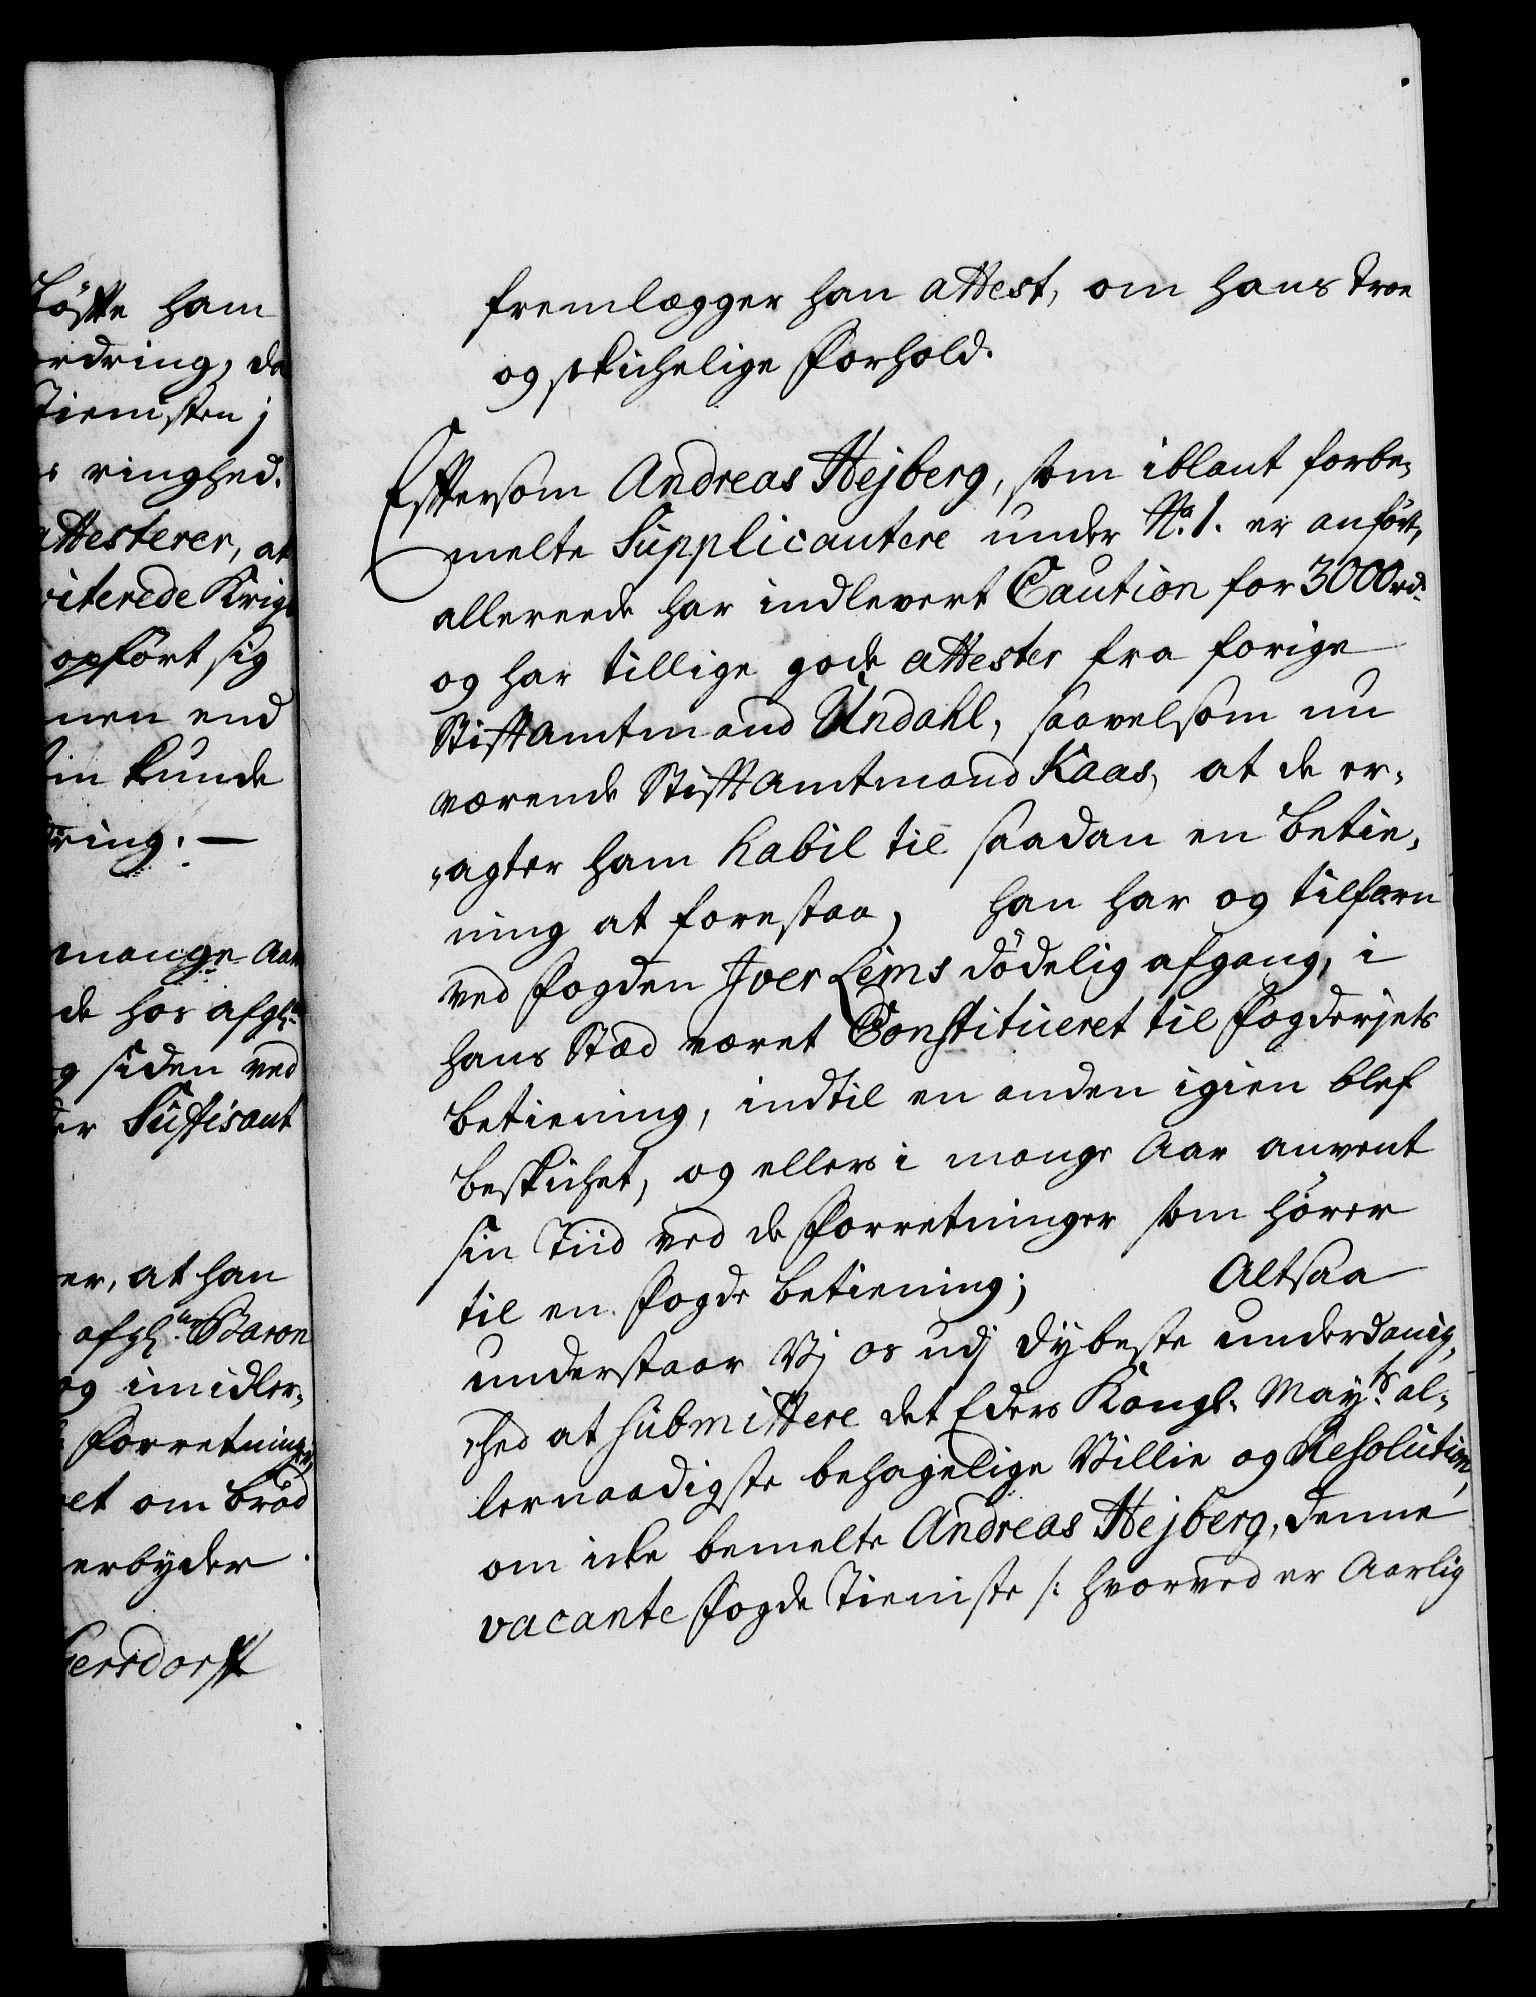 Löste ham
ordring, de
Tienisten j
s ringhed.
attesterer, at
citerede Krigs
opført sig
men end
kunde
ring. —
mange Aar
de hos afgl:
g siden ved
er Suffisant
er, at han
afgl:n Baron
og imidler-
Forretninger,
et om bröd
erbyder
Gersdorff
fremlegger han attest, om hans troe
og skichelige Forhold.
Efftersom Andreas Hejberg, som iblant forbe-
melte Supplicantere under No. 1. er anført,
allereede har indlevert Caution for 3000 rd.
og har tillige gode attester fra forige
Stiftamtmand Undahl, saavelsom nu
værende Stiftamtmand Kaas, at de er-
agter ham habil til saadan en betie-
ning at forestaa, han har og tilforn
ved Fogden Iver Leims dödelig afgang, i
hans Stæd været Constitueret til Fogderjets
betiening, indtil en anden igien blef
beskichet, og ellers i mange Aar anvent
sin Tiid ved de Forretninger som hörer
til en Fogde betiening; Altsaa
understaar Vj os udj dybeste underdanig-
hed at submittere det Eders Kongl. May:ts al-
lernaadigste behagelige Villie og Resolution,
om icke bemelte Andreas Hejberg, denne
vacante Fogde Tieniste /: hvorved er Aarlig